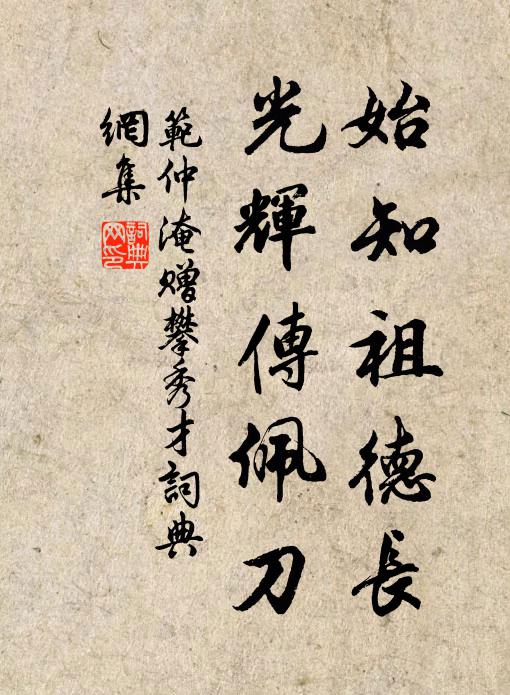 始知祖德長
光輝傳佩刀
範仲淹贈攀秀才詞典
網集
詞典網印